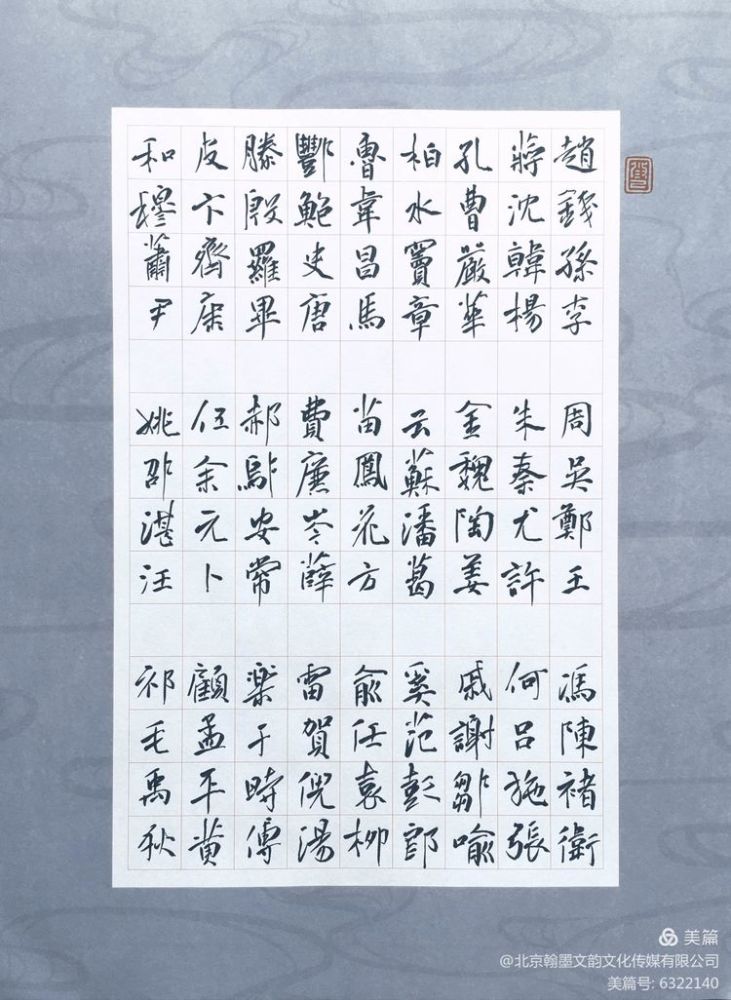 趙錢孫李 周吳鄭王 馮陳褚衛
蔣沈韓楊 朱秦尤許 何呂施張
孔曹嚴華 金魏陶姜 戚謝鄒喻
柏水竇章 云蘇潘葛 奚范彭郎
魯韋昌馬 苗鳳花方 俞任袁柳
酆鮑史唐 費廉岑薛 雷賀倪湯
滕殷羅畢 郝鄔安常 樂于時傅
皮卞齊康 伍余元卜 顧孟平黃
和穆蕭尹 姚邵湛汪 祁毛禹狄
美篇
@北京翰墨文韵文化传媒有限公司
美篇号: 6322140